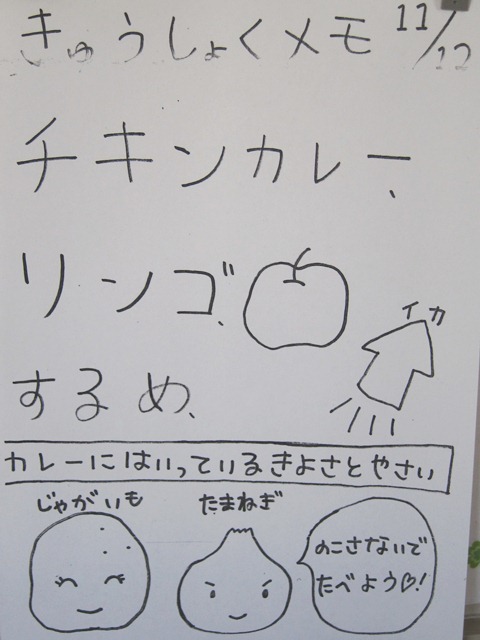 きゅうしょくメモ 11/12
チキンカレー、
リンゴ、
イカ
するめ、
カレーにはいっているきよさとやさい
じゃがいも
たまねぎ
のこさないで
たべよう♡!